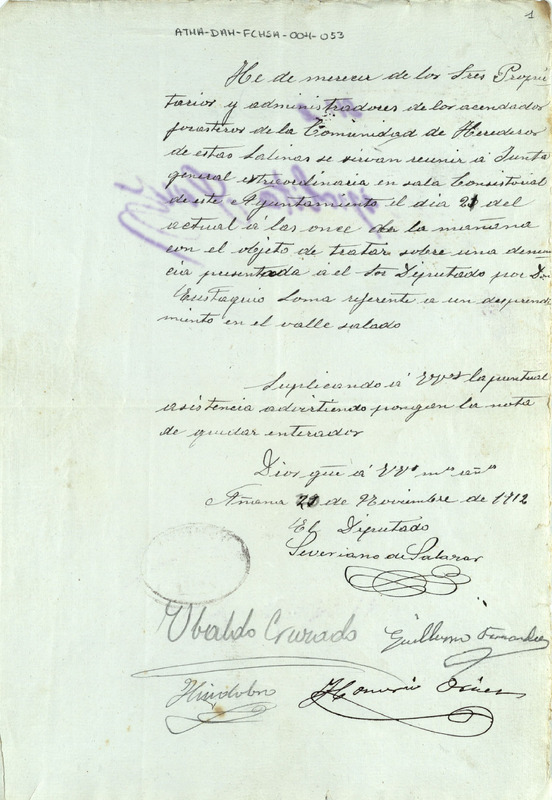 1
ATHA-DAH-FCHSA-004-053
He de merecer de los Sres Propie
tarios y administradores de los acendador
forasteros de la Comunidad de Herederos
de estas Salinas se sirvan reunir a Junta
general extraordinaria en sala Consistorial
de este Ayuntamiento el dia 21 del
actual á las once de la mañana
con el objeto de tratar sobre una denun
cia presentada á el Sor Diputado por Dn
Eustaquio Loma referente a un desprendi
miento en el valle salado
Suplicando á VVes la puntual
asistencia advirtiendo pongan la nota
de quedar enterador
Dios gue á VVs ms añs
Añana de Noviembre de 1912
El Diputado
Severiano de Salazar
Ubaldo Cruzado
Guillermo Fernandez
Honorio